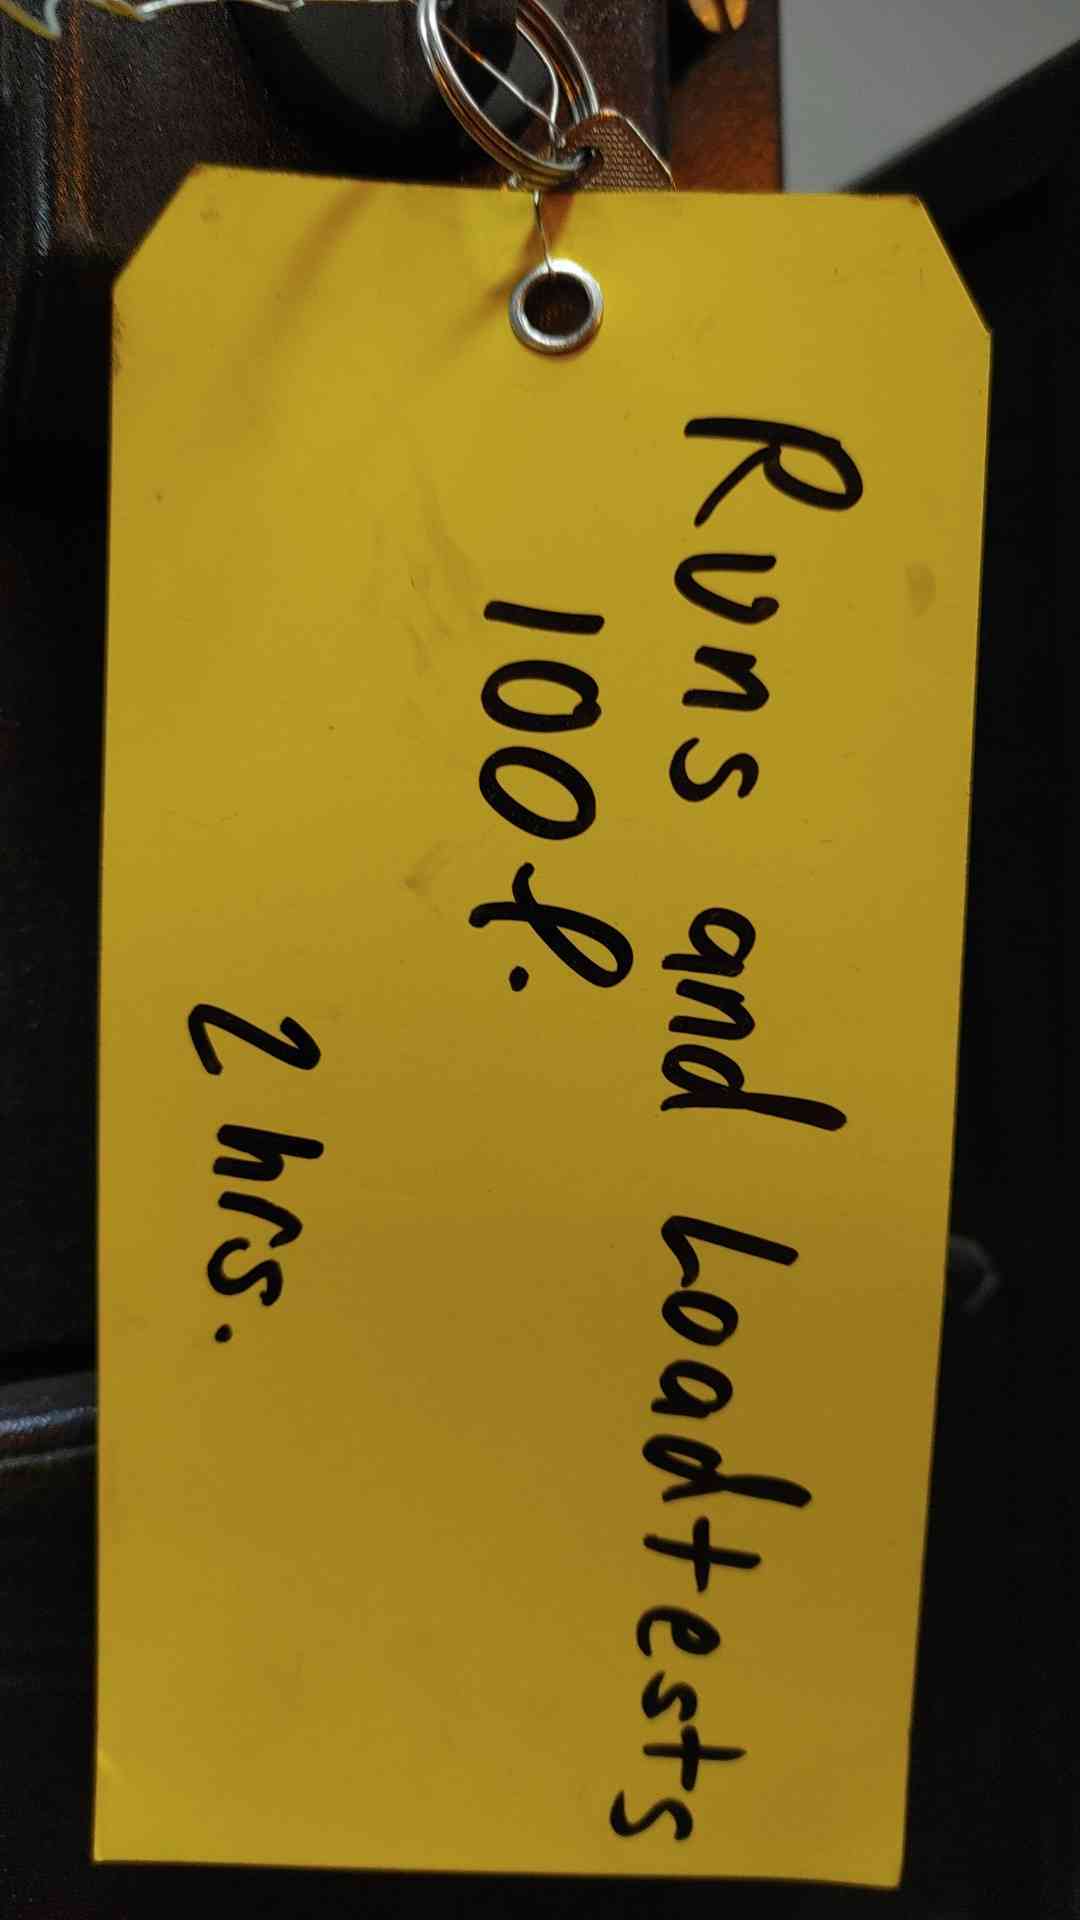 Runs and Loadtests
100%
2 hrs.